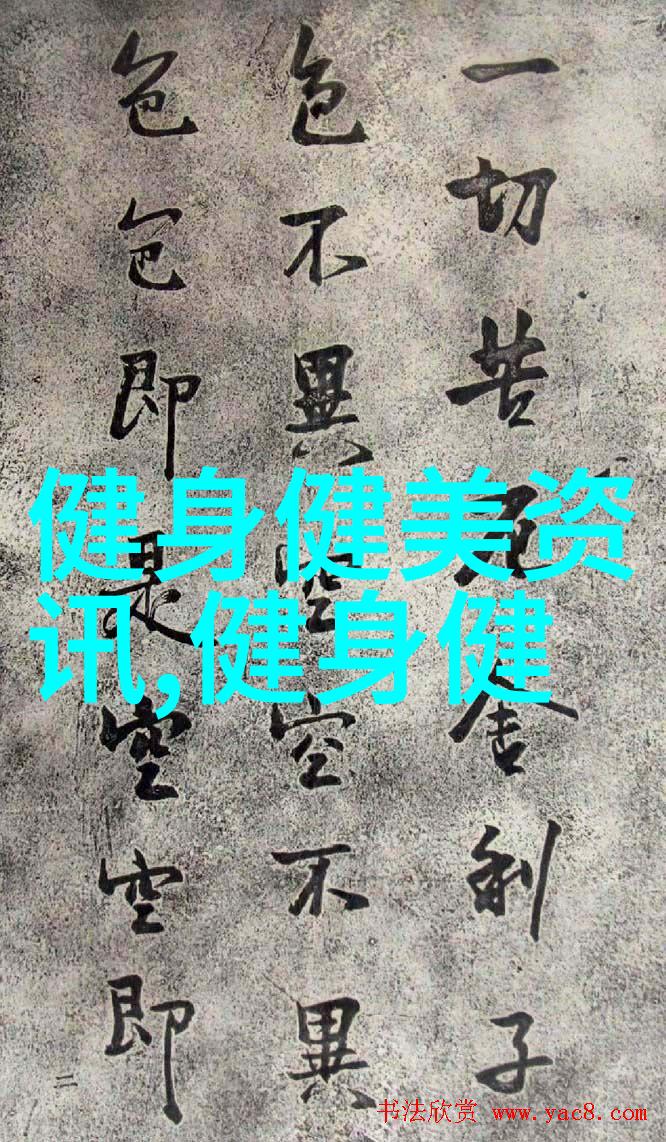 一切苦厄舍利子
色不異空空不異
色色即是空空即
二
健身健美资
讯,健身健
书法欣赏 www.yac8.com